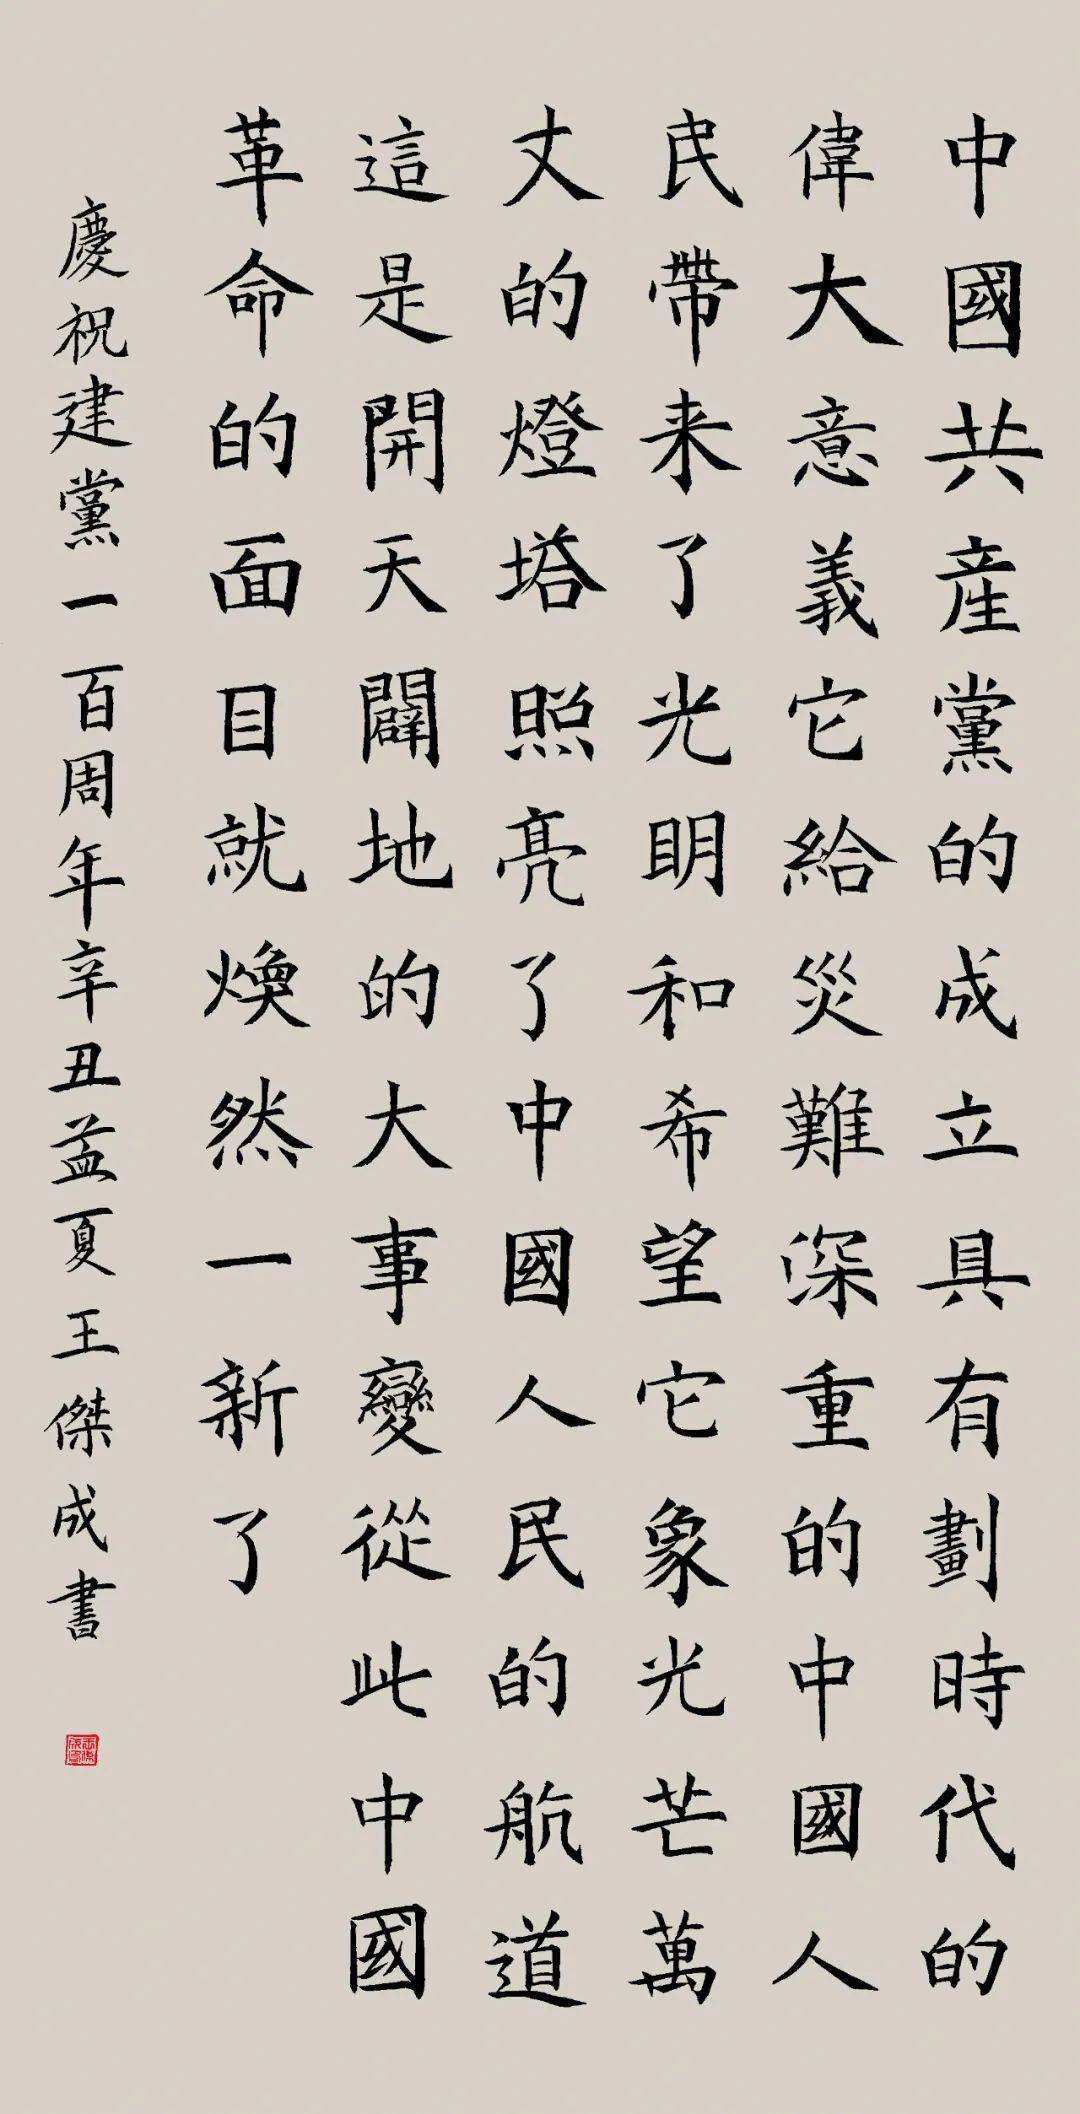 中國共產黨的成立具有劃時代的
偉大意義它給災難深重的中國人
民帶来了光明和希望它象光芒萬
丈的燈塔照亮了中國人民的航道
這是開天闢地的大事變從此中國
革命的面目就煥然一新了
慶祝建黨一百周年辛丑孟夏王傑成書